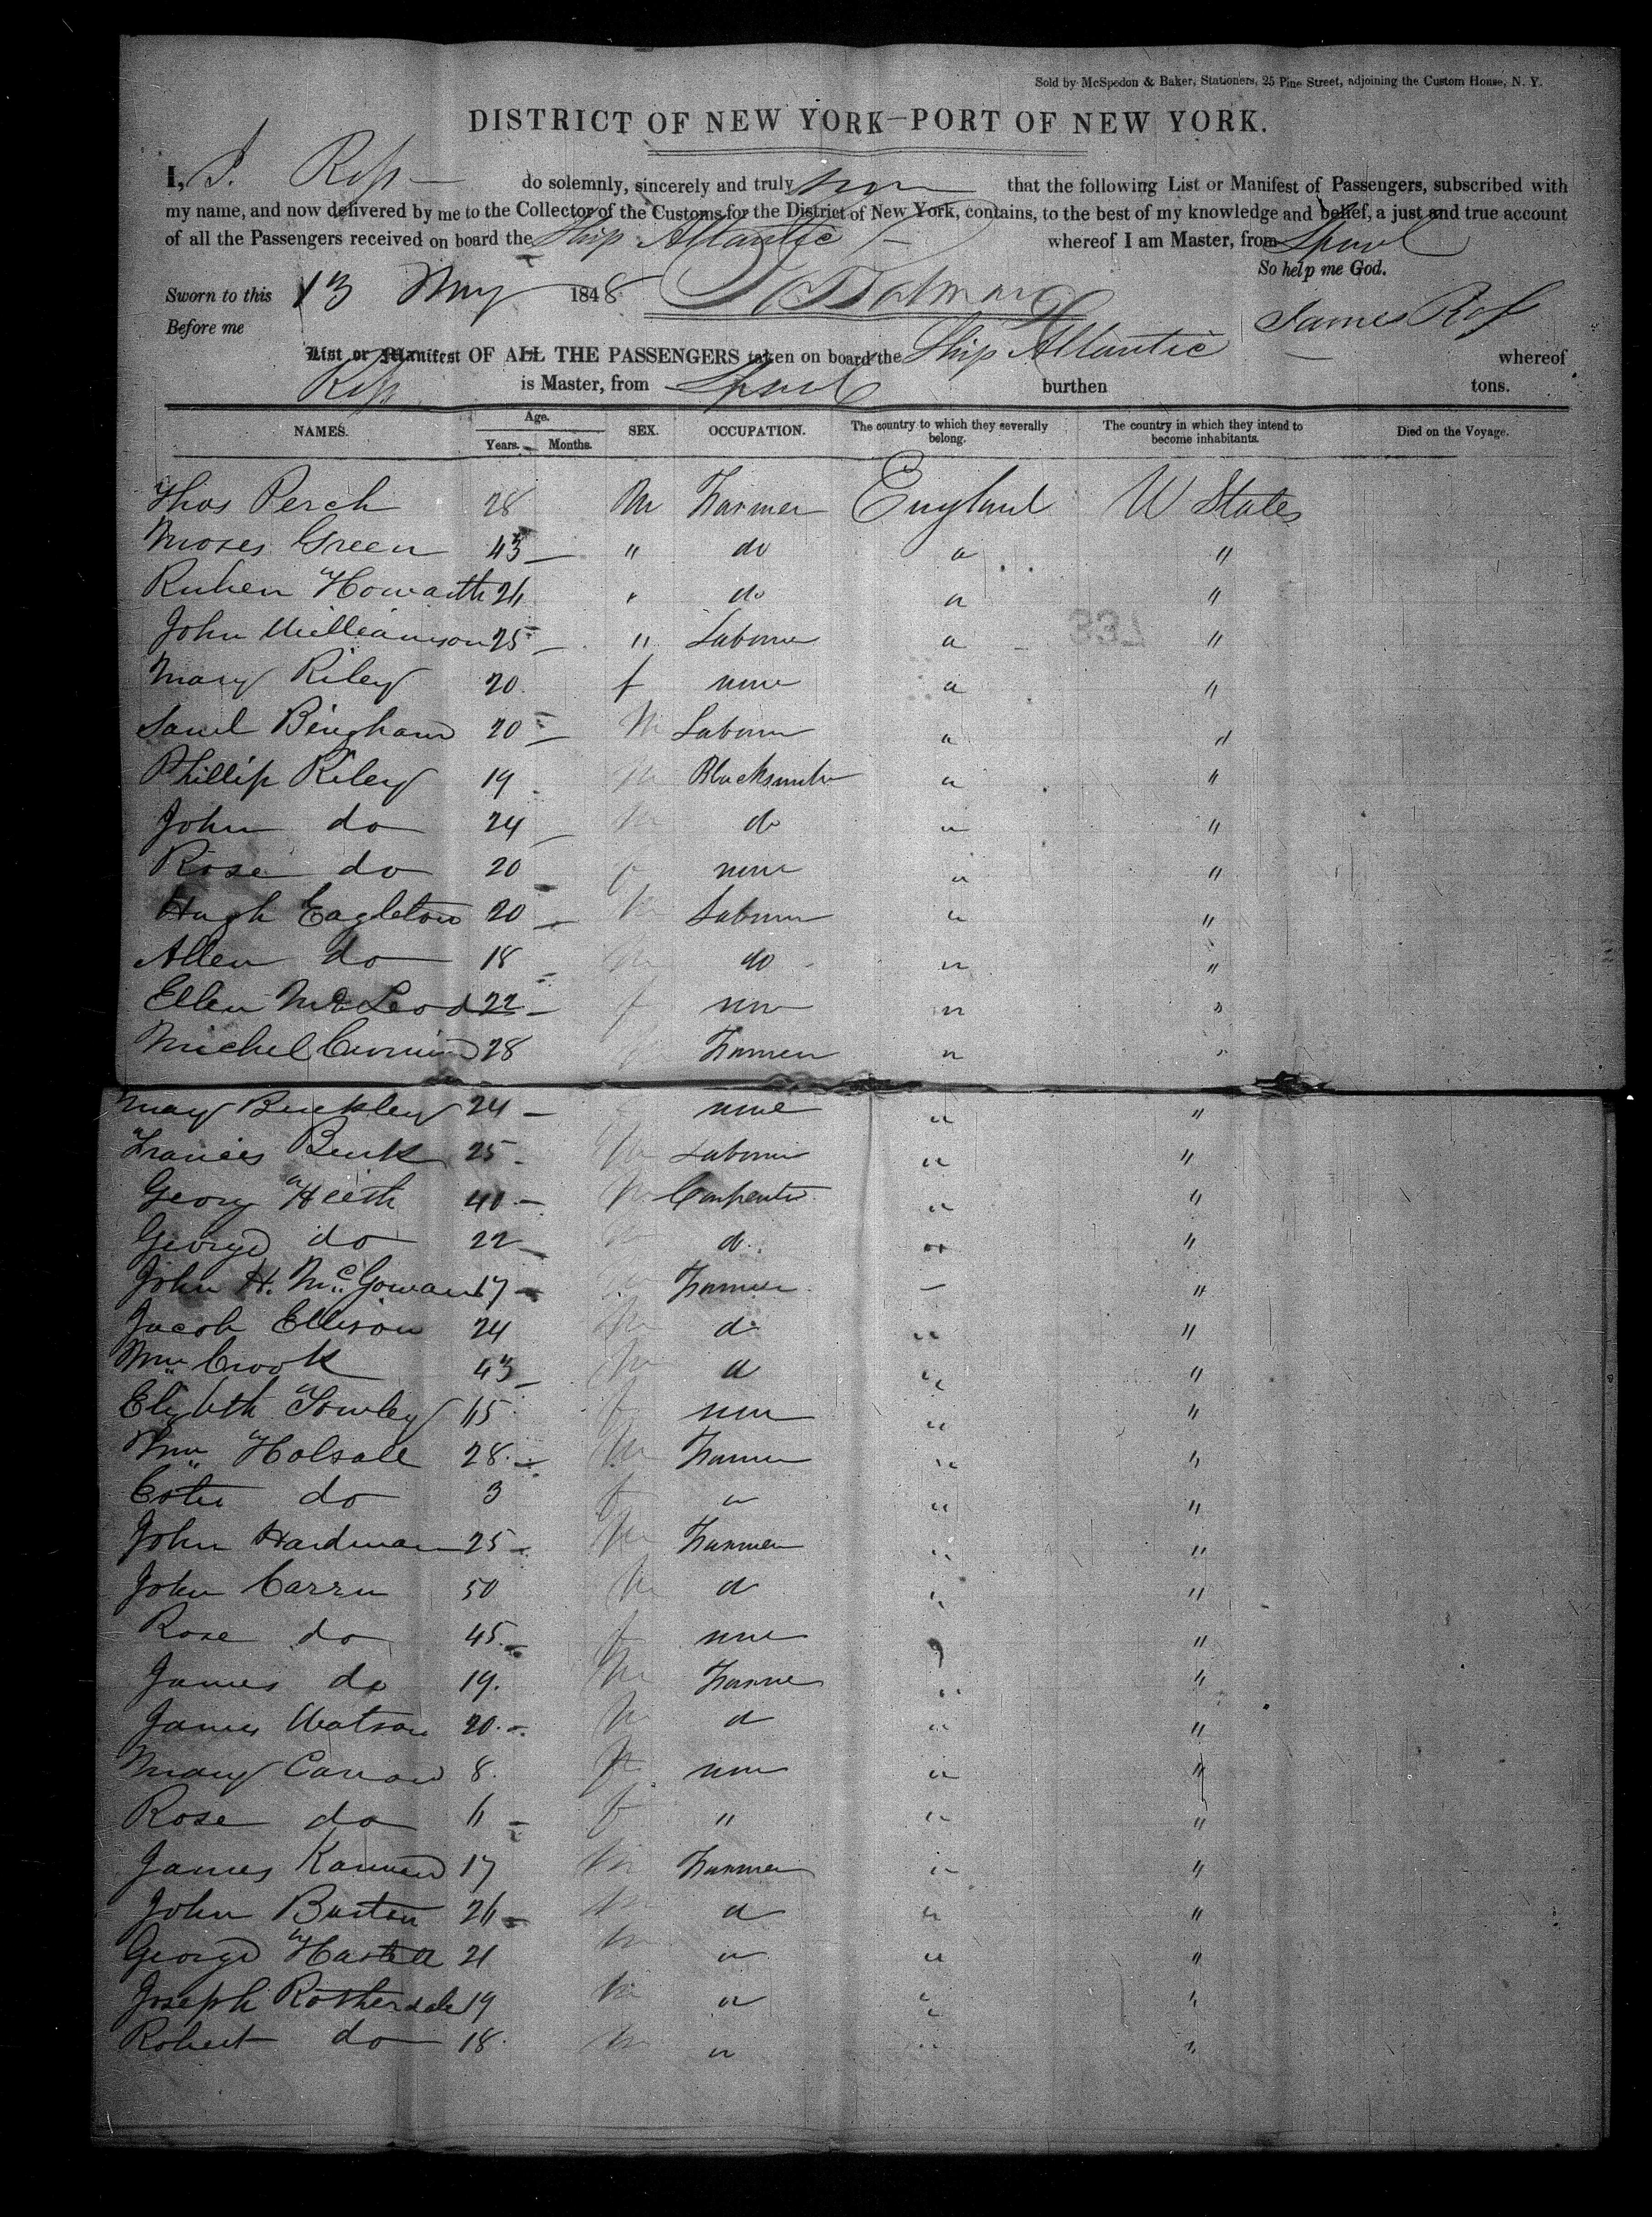 Sold by McSpedon & Baker, Stationers, 25 Pine Street, adjoining the Custom House, N. Y.
DISTRICT OF NEW YORK—PORT OF NEW YORK.
I, J. Ross do solemnly, sincerely and truly that the following List or Manifest of Passengers, subscribed with
my name, and now delivered by me to the Collector of the Customs for the District of New York, contains, to the best of my knowledge and belief, a just and true account
of all the Passengers received on board the Ship Atlantic whereof I am Master, from Lpool
So help me God.
Sworn to this 13 May 1848
Before me James Ross
List or Manifest OF ALL THE PASSENGERS taken on board the Ship Atlantic whereof
Ross is Master, from Lpool burthen tons.
NAMES. Age. Years. Months. SEX. OCCUPATION. The country to which they severally belong. The country in which they intend to become inhabitants. Died on the Voyage.
Thos Perch 28 M Farmer England U States
Moses Green 43 " do " "
Ruben Howarth 26 " do " "
John Williamson 25 " Laborer " "
Mary Riley 20 f none " "
Saml Bingham 20 M Laborer " "
Phillip Riley 19 M Blacksmith " "
John do 24 M do " "
Rose do 20 f none " "
Hugh Eagleton 20 M Laborer " "
Allen do 18 M do " "
Ellen McLeod 22 f none " "
Michel 28 Farmer " "
Mary Buckley 24 none " "
Francis Burk 25 M Laborer " "
Georg Heith 40 M Carpenter " "
George do 22 M do " "
John H. McGowan 17 Farmer " "
Jacob Ellison 24 M do " "
Wm Crook 43 M do " "
Elizbth Towley 15 f none " "
Wm Holsall 28 M Farmer " "
do 3 f " " "
John Hardman 25 M Farmer " "
John 50 M do " "
Rose do 45 f none " "
James do 19 M Farmer " "
James Watson 20 M do " "
Mary 8 f none " "
Rose do 6 f " " "
James 17 M Farmer " "
John Burton 26 M do " "
George 21 M " " "
Joseph Rotherdale 19 M " " "
Robert do 18 M " " "